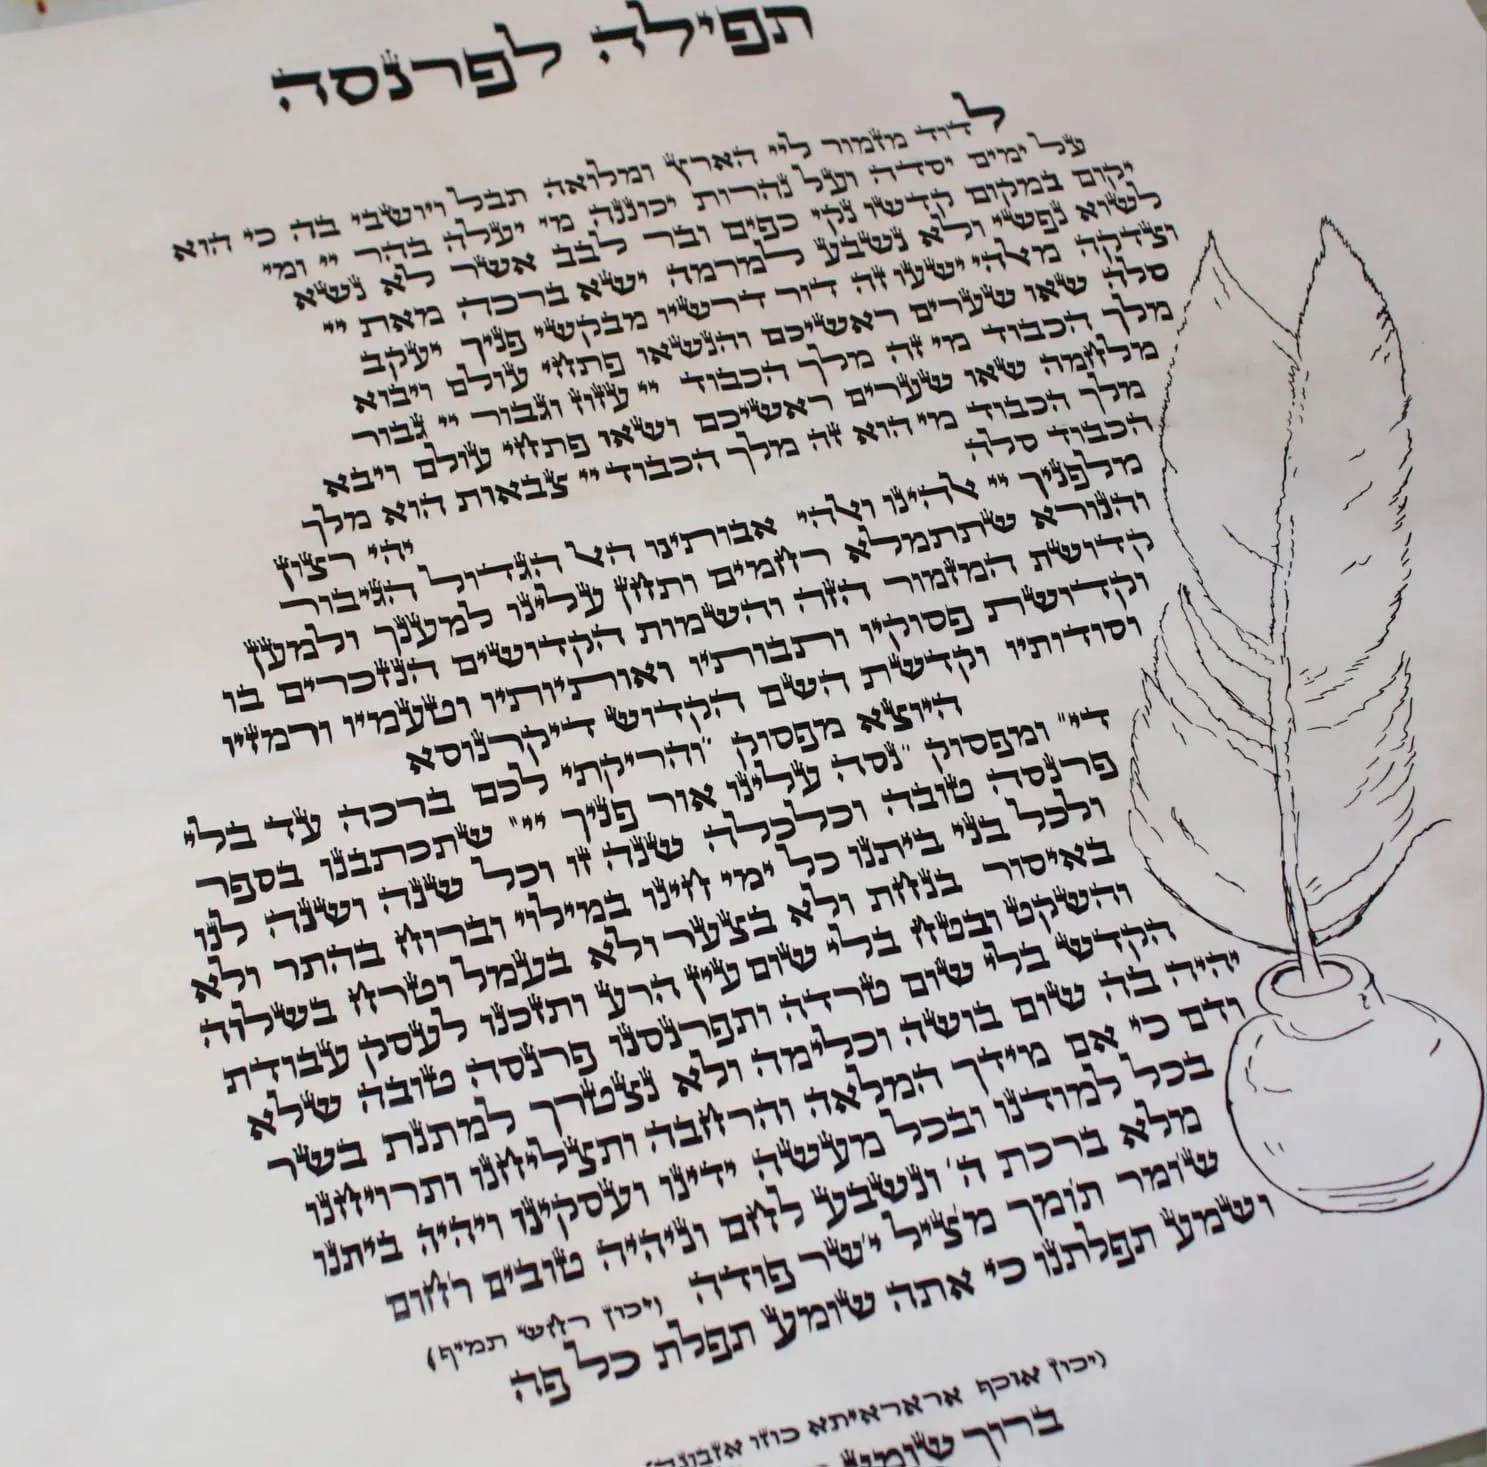 תפילה לפרנסה
לדוד מזמור ליי הארץ ומלואה תבל ויושבי בה כי הוא
על ימים יסדה ועל נהרות יכוננה מי יעלה בהר יי ומי
יקום במקום קדשו נקי כפים ובר לבב אשר לא נשא
לשוא נפשי ולא נשבע למרמה ישא ברכה מאת יי
וצדקה מאלהי ישעו זה דור דרשיו מבקשי פניך יעקב
סלה שאו שערים ראשיכם והנשאו פתחי עולם ויבוא
מלך הכבוד מי זה מלך הכבוד יי עזוז וגבור יי גבור
מלחמה שאו שערים ראשיכם ושאו פתחי עולם ויבא
מלך הכבוד מי הוא זה מלך הכבוד יי צבאות הוא מלך
הכבוד סלה יהי רצון
מלפניך יי אלהינו ואלהי אבותינו האל הגדול הגיבור
והנורא שתתמלא רחמים ותחן עלינו למענך ולמען
קדושת המזמור הזה והשמות הקדושים הנזכרים בו
וקדושת פסוקיו ותבותיו ואותיותיו וטעמיו ורמזיו
וסודותיו וקדשת השם הקדוש דיקרנוסא
היוצא מפסוק "והריקתי לכם ברכה עד בלי
די" ומפסוק "נסה עלינו אור פניך יי" שתכתבנו בספר
פרנסה טובה וכלכלה שנה זו וכל שנה ושנה לנו
ולכל בני ביתנו כל ימי חינו במילוי וברוח בהתר ולא
באיסור בנחת ולא בצער ולא בעמל וטרח בשלוה
והשקט ובטח בלי שום עין הרע ותזכנו לעסק עבודת
הקדש בלי שום טרדה ותפרנסנו פרנסה טובה שלא
יהיה בה שום בושה וכלימה ולא נצטרך למתנת בשר
ודם כי אם מידך המלאה והרחבה ותצליחנו ותרויחנו
בכל למודנו ובכל מעשה ידינו ועסקינו ויהיה ביתנו
מלא ברכת ה' ונשבע לחם ונהיה טובים רחום
שומר תומך מציל ישר פודה (ויכון רחש תמיף)
ושמע תפלתנו כי אתה שומע תפלת כל פה
(יכון אוכף אראראיתא כוזו
ברוך שומע